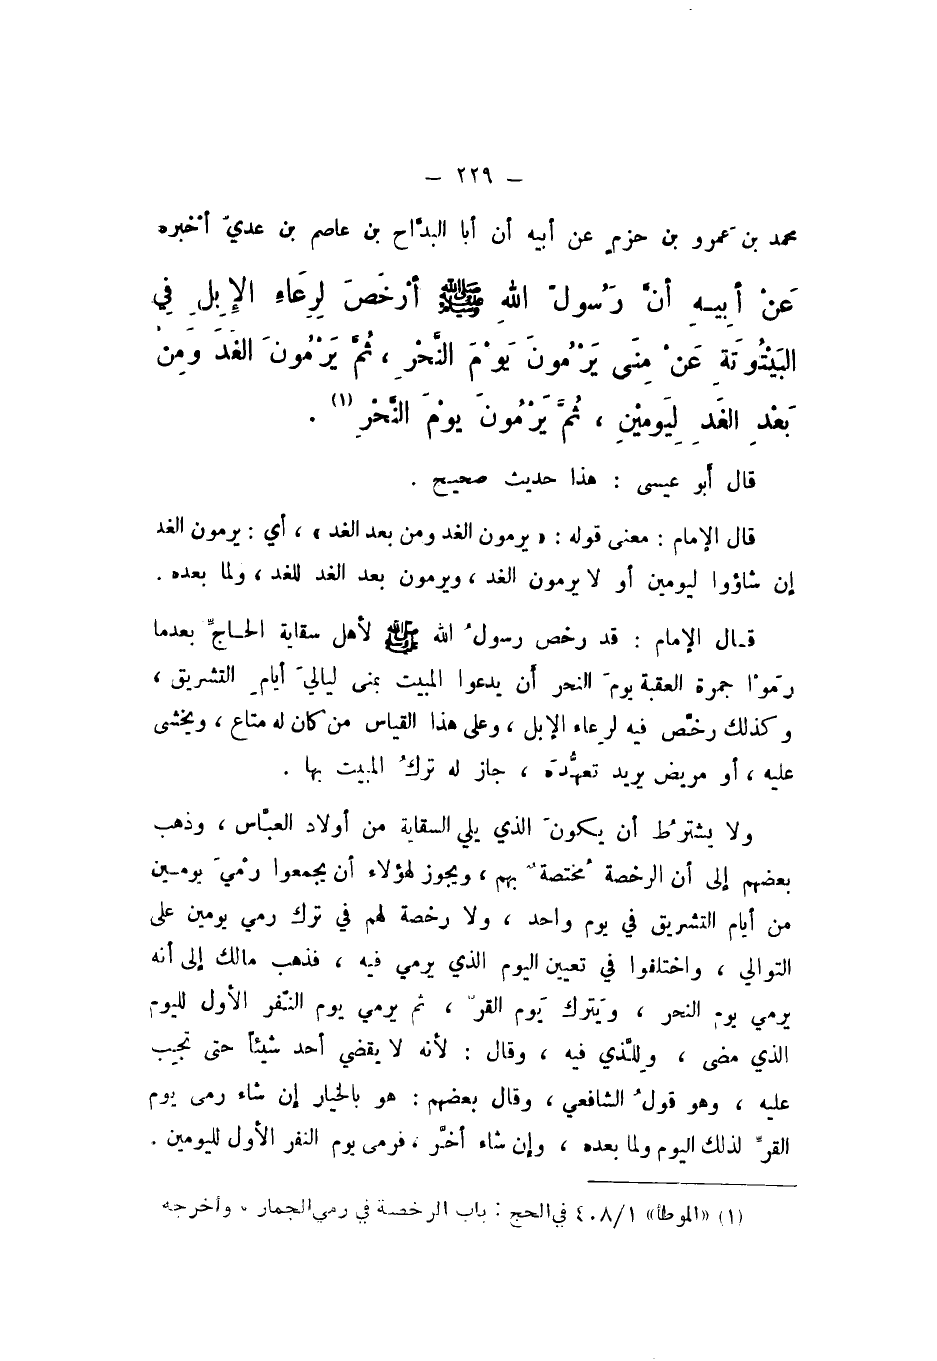 — ٢٢٩ —
محمد بن عَمرو بن حزمٍ عن أبيه أن أبا البدَّاح بن عاصم بن عديّ أخْبره
عَنْ أَبِيهِ أنَّ رَسُولَ اللهِ ﷺ أرْخَصَ لِرِعَاءِ الإِبِلِ فِي
البَيْتُوتَةِ عَنْ مِنَى يَرْمُونَ يَوْمَ النَّحْرِ ، ثُمَّ يَرْمُونَ الغَدَ وَمِنْ
بَعْدِ الغَدِ لِيَومَيْنِ ، ثُمَّ يَرْمُونَ يومَ النَّحْرِ (١) .
قال أبو عيسى : هذا حديث صحيح .
قال الإمام : معنى قوله : « يرمون الغد ومن بعد الغد » ، أي : يرمون الغد
إن شاؤوا ليومين أو لا يرمون الغد ، ويرمون بعد الغد للغد ، ولما بعده .
قال الإمام : قد رخص رسولُ الله ﷺ لأهل سقاية الحاجِّ بعدما
رَموْا جمرة العقبة يومَ النحر أن يدعوا المبيت بمنى لياليَ أيامِ التشريق ،
وكذلك رخّص فيه لرعاء الإبل ، وعلى هذا القياس من كان له متاع ، ويخشى
عليه ، أو مريض يريد تعهُّدَه ، جاز له تركُ المبيت بها .
ولا يشترَط أن يكونَ الذي يلي السقاية من أولاد العبّاس ، وذهب
بعضهم إلى أن الرخصة مُختصةٌ بهم ، ويجوز لهؤلاء أن يجمعوا رمْيَ يومين
من أيام التشريق في يوم واحد ، ولا رخصة لهم في ترك رمي يومين على
التوالي ، واختلفوا في تعيين اليوم الذي يرمي فيه ، فذهب مالك إلى أنه
يرمي يوم النحر ، ويَترك يَوم القرّ ، ثم يرمي يوم النّفر الأول لليوم
الذي مضى ، وللَّذي فيه ، وقال : لأنه لا يقضي أحد شيئاً حتى تجيب
عليه ، وهو قولُ الشافعي ، وقال بعضهم : هو بالخيار إن شاء رمى يوم
القرِّ لذلك اليوم ولما بعده ، وإن شاء أخَّر ، فرمى يوم النفر الأول لليومين .
(١) «الموطأ» ٤٠٨/١ في الحج : باب الرخصة في رمي الجمار ، وأخرجه